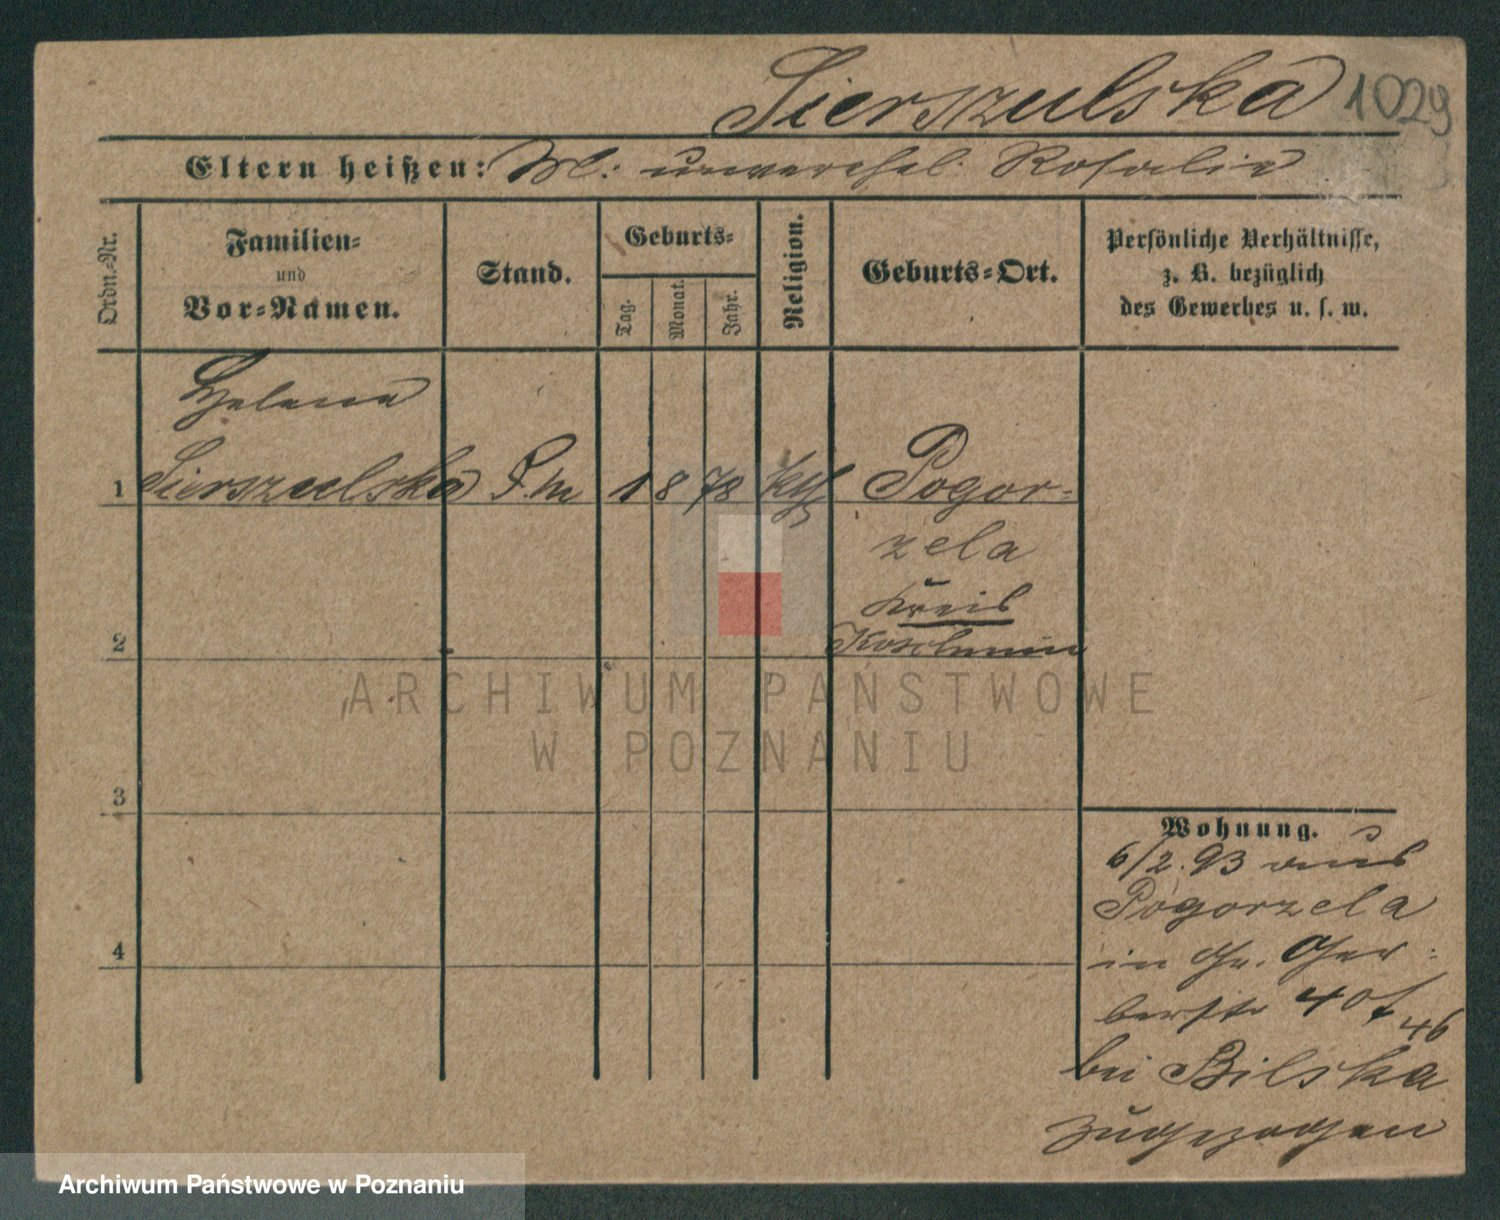 Sierszulska 1029
Eltern heißen: M: unverehel: Rosalie
Ordn.-Nr.
Familien-
und
Vor-Namen.
Stand.
Geburts-
Tag.
Monat.
Jahr.
Religion.
Geburts-Ort.
Persönliche Verhältnisse,
z. B. bezüglich
des Gewerbes u. s. w.
Helena
1 Sierszulska 1 8 78 kth Pogor-
zela
Kreis
2 Koschmin
ARCHIWUM PAŃSTWOWE
W POZNANIU
3
4
Wohnung.
6/2.93 aus
Pogorzela
in Gr. Ger-
berstr 40
46
bei Bilska
zugezogen
Archiwum Państwowe w Poznaniu